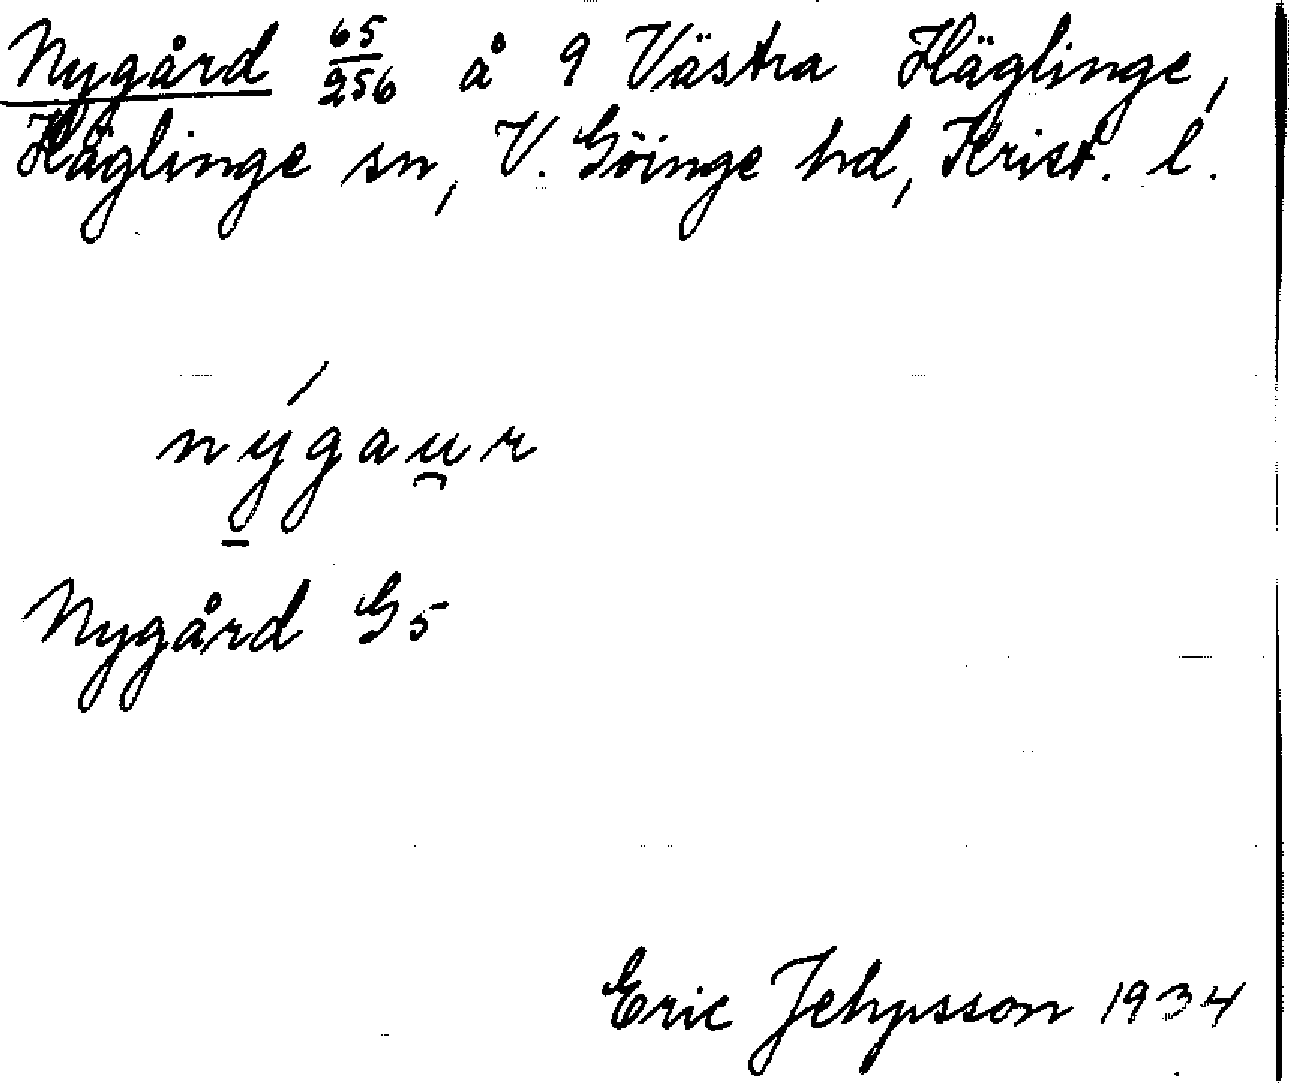 Nygård 65/256 å 9 Västra Häglinge,
Häglinge sn, V. Göinge hd, Krist. l.
nýgau̯r
Nygård G5
Eric Jehpsson 1934